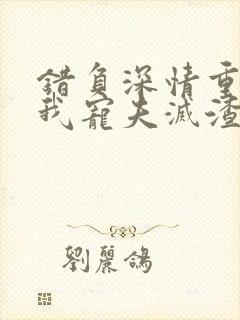 錯負深情重
我寵夫滅渣
劉麗鴿